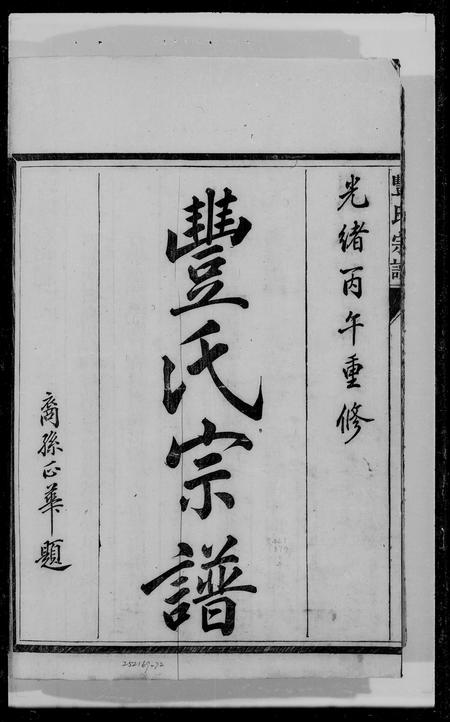 豐氏宗譜
光緒丙午重修
豐氏宗譜
裔孫正華題
252169-72